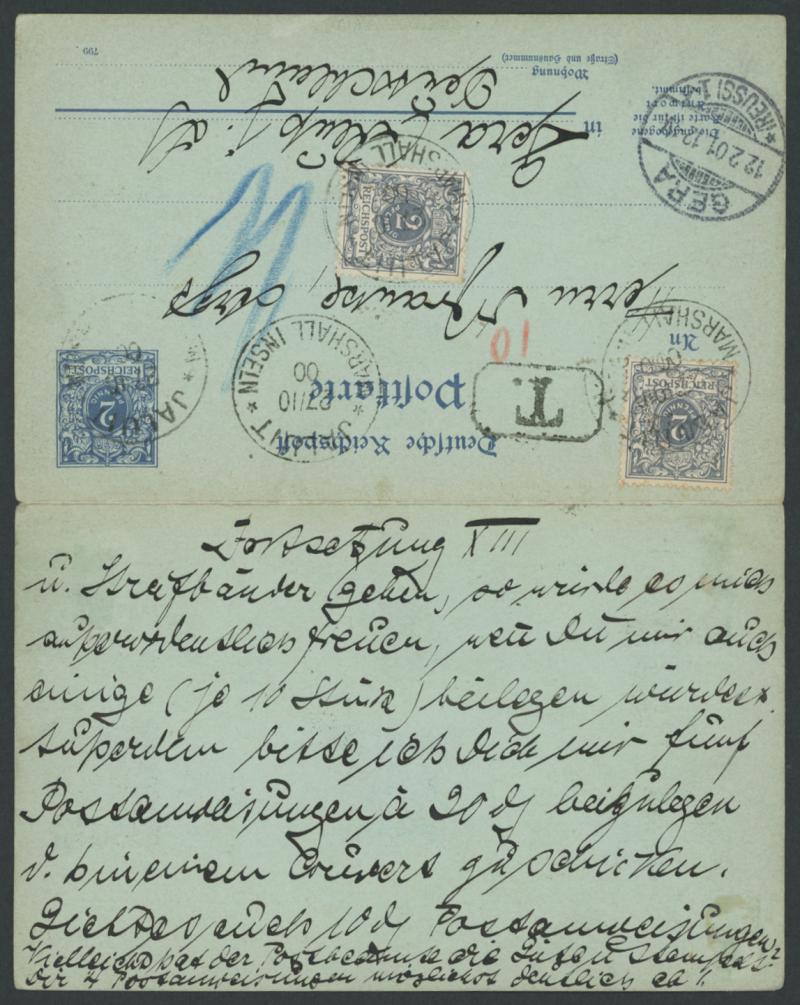 Deutsche Reichspost
Postkarte
An
Herrn
in Gera
Deutschland
Wohnung
(Straße und Hausnummer)
Die angebogene
Karte ist für die
Antwort
bestimmt.
799
T
10
REICHSPOST
2
REICHSPOST
2
REICHSPOST
2
JALUIT
27/10
00
MARSHALL INSELN
GERA
12.2.01.12
(REUSS) 1
Fortsetzung XIII
u. Streifbänder gehen, so würde es mich
außerordentlich freuen, wen Du mir auch
einige (je 10 Stück) beilegen würdest.
Außerdem bitte ich Dich mir fünf
Postanweisungen à 20 beizulegen
in einem Couvert zu schicken.
Giebt es auch 10 Postanweisungen?
Vielleicht hat der Postbeamte die Güte u. stempelt
Dir 4 Postanweisungen möglichst deutlich ab!